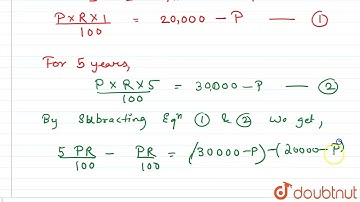 P×R×1/100 = 20,000 - P — ①
For 5 years,
P×R×5/100 = 30000 - P — ②
By Subbracting Eqⁿ ① & ② we get,
5PR/100 - PR/100 = (30000-P) - (20000-P)
doubtnut